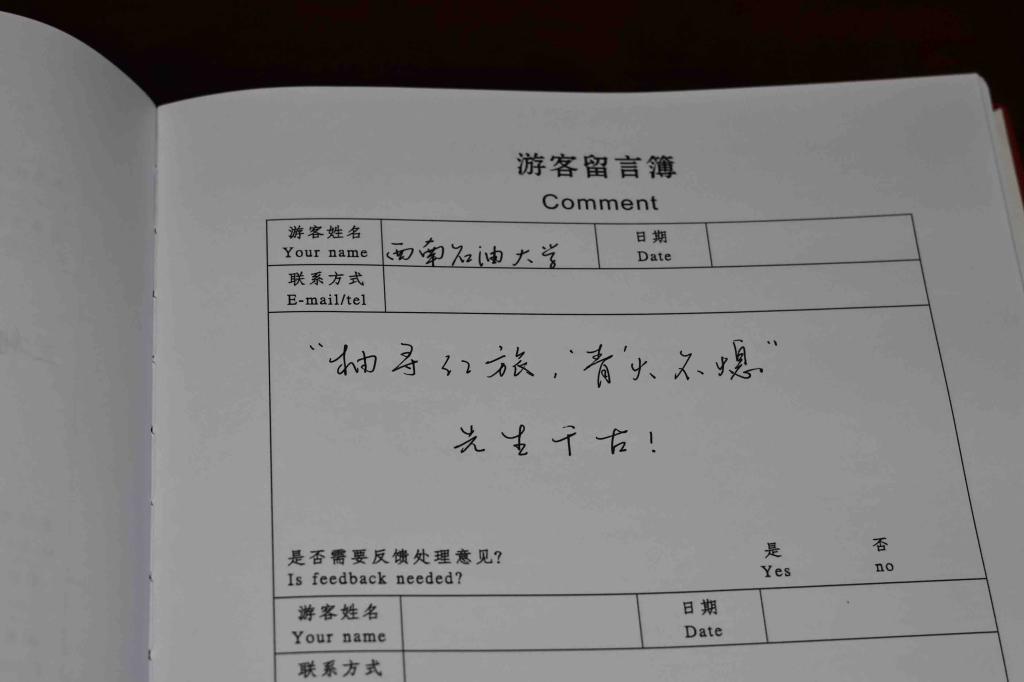 游客留言簿
Comment
游客姓名 西南石油大学 日期
Your name Date
联系方式
E-mail/tel
“柚寻红旅,‘青’火不熄”
先生千古!
是否需要反馈处理意见? 是 否
Is feedback needed? Yes no
游客姓名 日期
Your name Date
联系方式